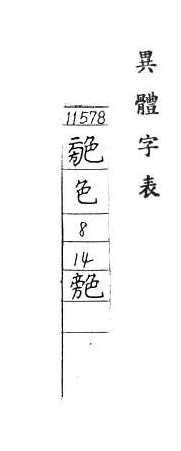 異體字表
11578
色
8
14